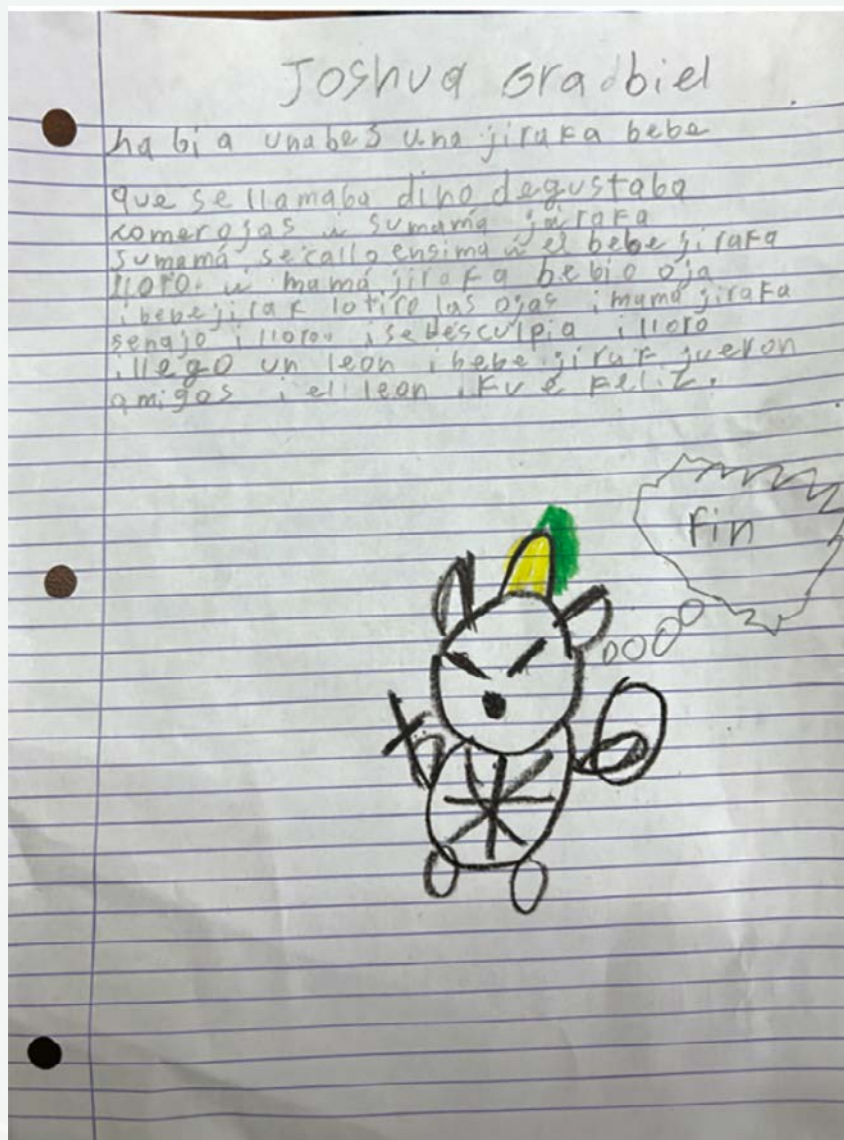 Joshua Gradbiel
ha bi a unabes una jirafa bebe
que se llamaba dino degustaba
comerojas i sumamá jirafa
sumamá secallo ensima i el bebe jirafa
lloro. i mamá jirafa bebio oja
i bebejiraf lotiro las ojas i mamá jirafa
senojo i lloro. i sedesculpia i lloro
i llego un leon i bebe jiraf jueron
amigos i el leon i fue feliz.
Fin